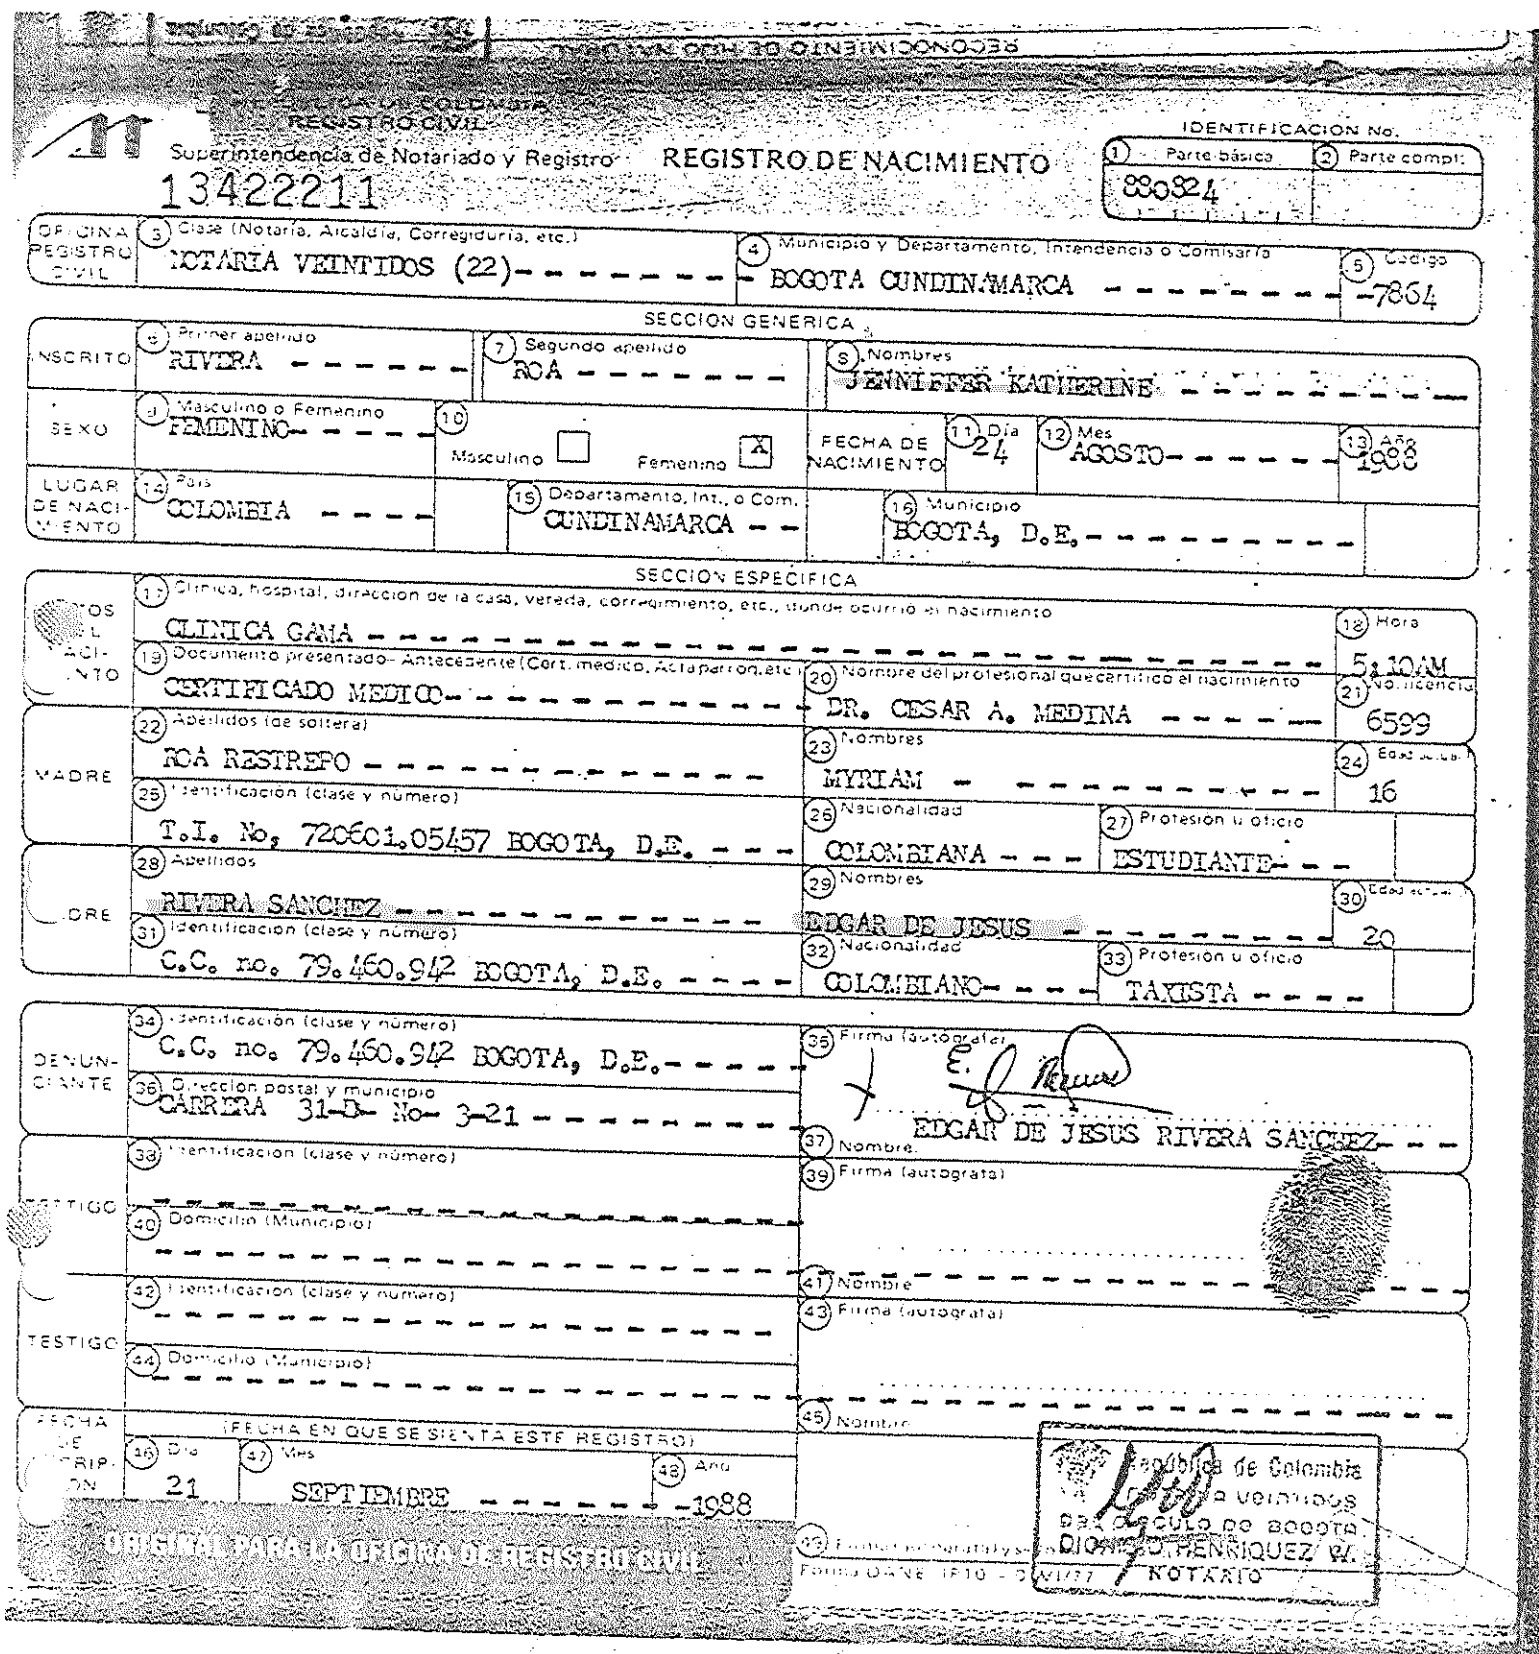 RECONOCIMIENTO DE HIJO NATURAL
REPUBLICA DE COLOMBIA
REGISTRO CIVIL
Superintendencia de Notariado y Registro
REGISTRO DE NACIMIENTO
13422211
IDENTIFICACION No.
1 Parte básica
2 Parte compl.
880824
OFICINA REGISTRO CIVIL
3 Clase (Notaría, Alcaldía, Corregiduría, etc.)
NOTARIA VEINTIDOS (22)- - - - - - - -
4 Municipio y Departamento, Intendencia o Comisaría
BOGOTA CUNDINAMARCA - - - - - - - -
5 Código
-7864
SECCION GENERICA
INSCRITO
6 Primer apellido
RIVERA - - - - - -
7 Segundo apellido
ROA - - - - - - -
8 Nombres
JENNIFFER KATHERINE - - - - - - - - -
SEXO
9 Masculino o Femenino
FEMENINO- - - - -
10
Masculino
Femenino X
FECHA DE NACIMIENTO
11 Día
24
12 Mes
AGOSTO- - - - - -
13 Año
1988
LUGAR DE NACI-
MIENTO
14 País
COLOMBIA - - - -
15 Departamento, Int., o Com.
CUNDINAMARCA - -
16 Municipio
BOGOTA, D.E. - - - - - - - - - -
SECCION ESPECIFICA
17 Clínica, hospital, dirección de la casa, vereda, corregimiento, etc., donde ocurrió el nacimiento
CLINICA GAMA - - - - - - - - - - - - - - - - - - - -
18 Hora
5:10AM
19 Documento presentado- Antecedente (Cert. médico, Acta parroq. etc.)
CERTIFICADO MEDICO- - - - - - - - - - - -
20 Nombre del profesional que certificó el nacimiento
DR. CESAR A. MEDINA - - - - - -
21 No. licencia
6599
MADRE
22 Apellidos (de soltera)
ROA RESTREPO - - - - - - - - - - - - -
23 Nombres
MYRIAM - - - - - - - - - -
24 Edad actual
16
25 Identificación (clase y número)
T.I. No, 720601.05457 BOGOTA, D.E. - - -
26 Nacionalidad
COLOMBIANA - - -
27 Profesión u oficio
ESTUDIANTE- - -
28 Apellidos
RIVERA SANCHEZ - - - - - - - - - - - -
29 Nombres
EDGAR DE JESUS - - - - - - - - -
30 Edad actual
20
31 Identificación (clase y número)
C.C. no. 79.460.942 BOGOTA, D.E. - - - -
32 Nacionalidad
COLOMBIANO- - - -
33 Profesión u oficio
TAXISTA - - - -
DENUN-
CIANTE
34 Identificación (clase y número)
C.C. no. 79.460.942 BOGOTA, D.E.- - - - -
35 Firma (autógrafa)
36 Dirección postal y municipio
CARRERA 31-D- No- 3-21 - - - - - - - - -
EDGAR DE JESUS RIVERA SANCHEZ- - -
37 Nombre
TESTIGO
38 Identificación (clase y número)
39 Firma (autógrafa)
40 Domicilio (Municipio)
41 Nombre
TESTIGO
42 Identificación (clase y número)
43 Firma (autógrafa)
44 Domicilio (Municipio)
45 Nombre
FECHA DE
(FECHA EN QUE SE SIENTA ESTE REGISTRO)
46 Día
21
47 Mes
SEPTIEMBRE - - - - - -
48 Año
-1988
República de Colombia
VEINTIDOS
DEL CIRCULO DE BOGOTA
DIONISIO HENRIQUEZ
NOTARIO
49
Forma DANE
ORIGINAL PARA LA OFICINA DE REGISTRO CIVIL